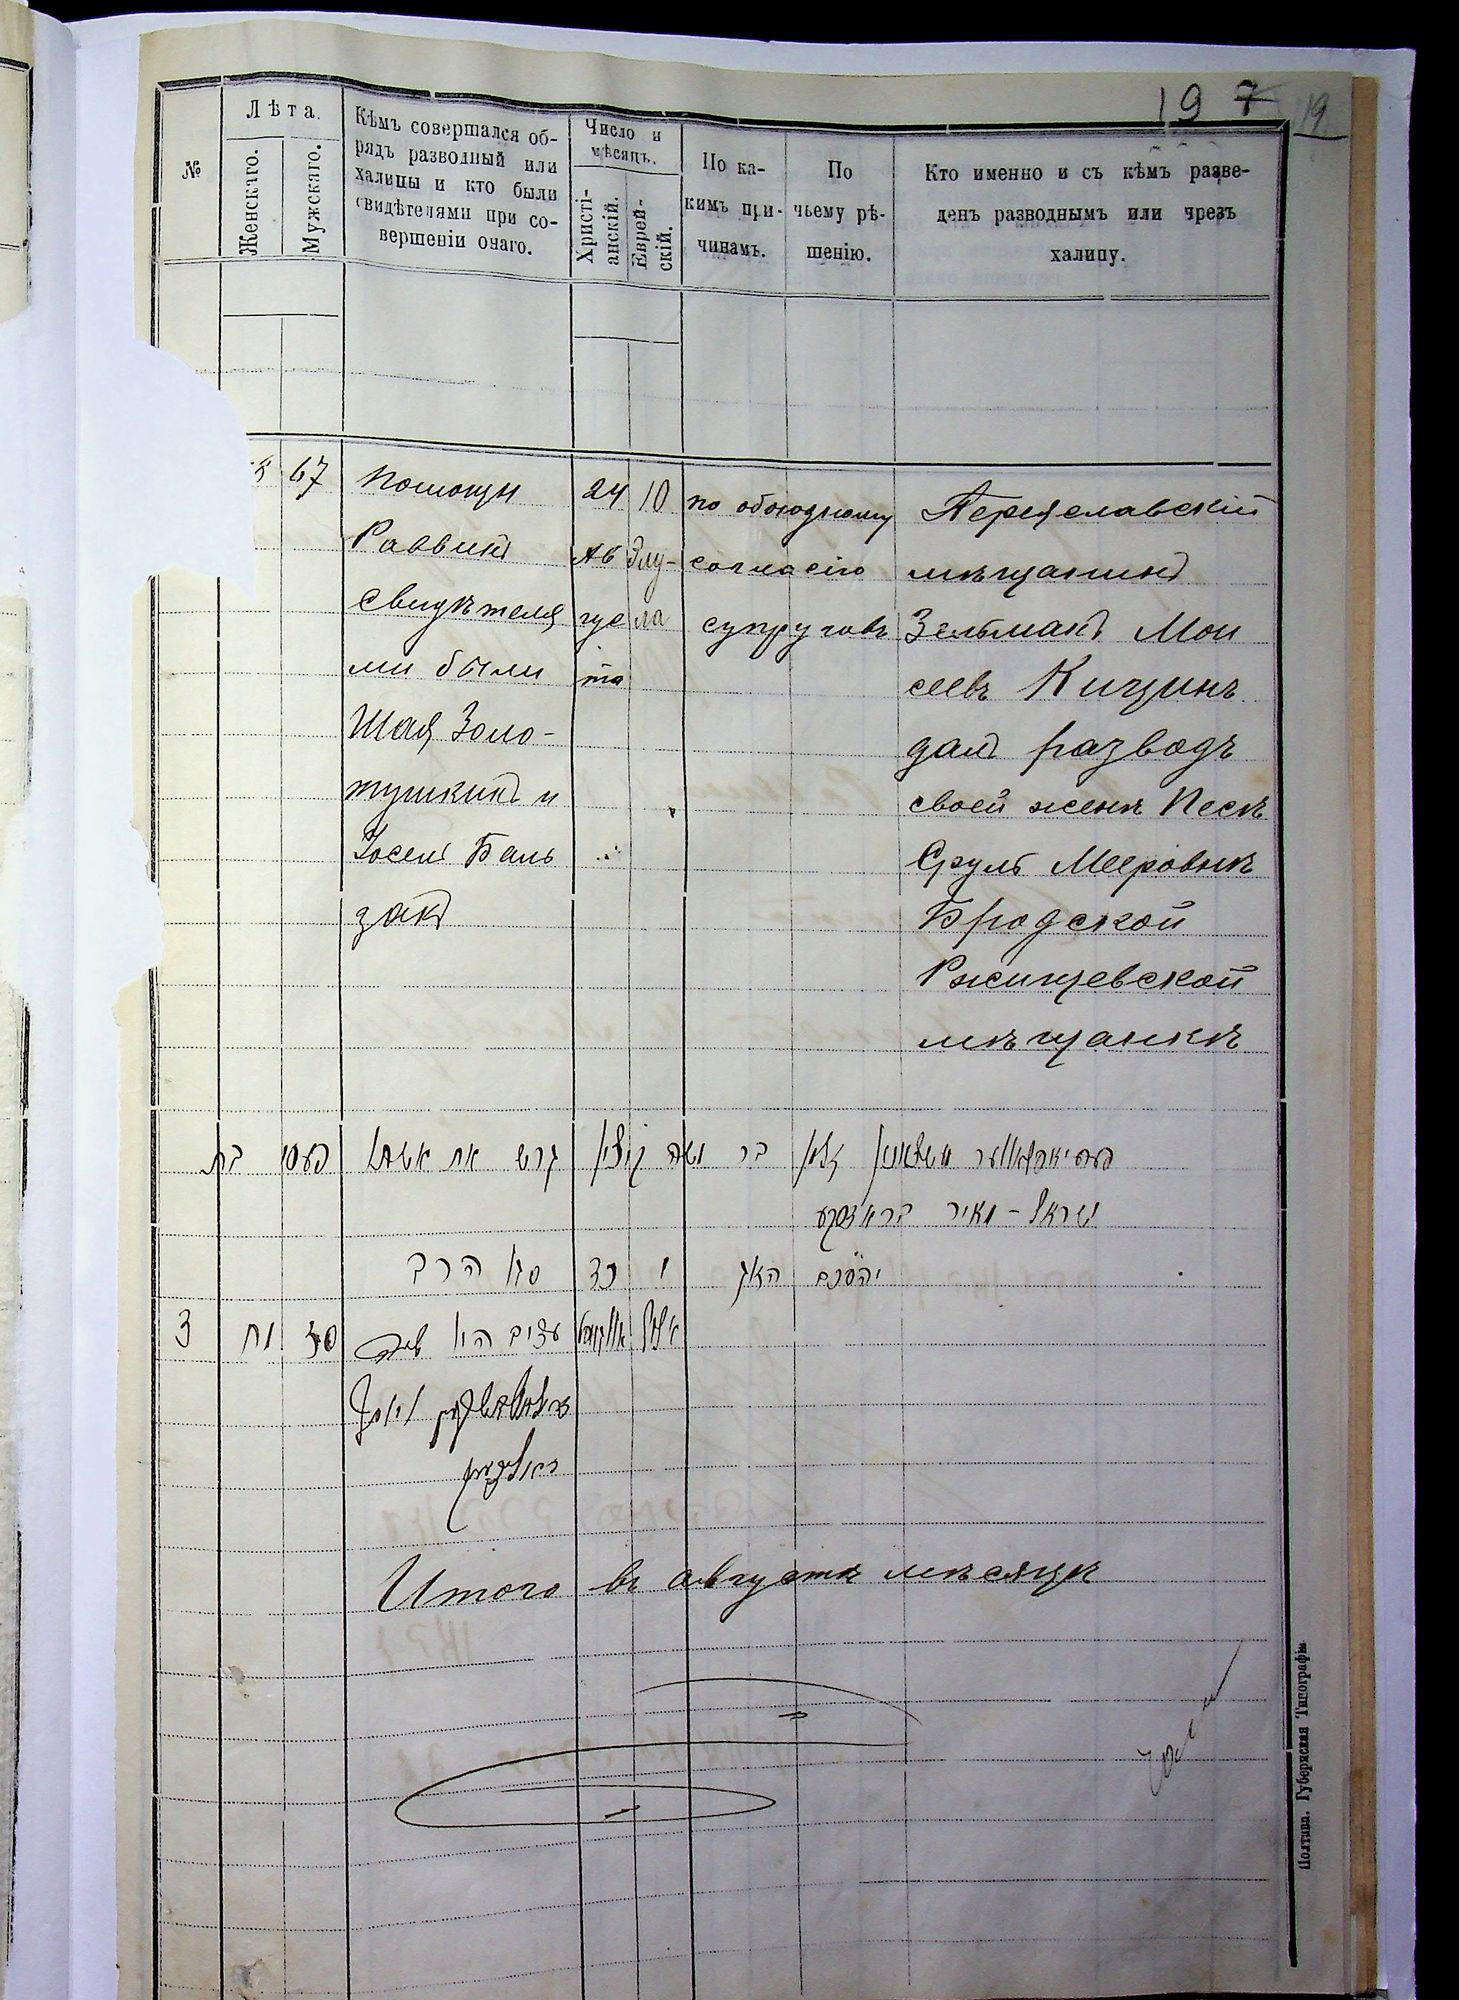 19 7 19
№
Лѣта.
Женскаго.
Мужскаго.
Кѣмъ совершался об-
рядъ разводный или
халицы и кто были
свидѣтелями при со-
вершеніи онаго.
Число и
мѣсяцъ.
Христі-
анскій.
Еврей-
скій.
По ка-
кимъ при-
чинамъ.
По
чьему рѣ-
шенію.
Кто именно и съ кѣмъ разве-
денъ разводнымъ или чрезъ
халицу.
67
Помощн
Раввинъ
свидѣтеля
ми были
Шая Золо-
тушкинъ и
Іосель Баль
закъ
24
Ав
гус
та
10
Элу-
ла
по обоюдному
согласію
супруговъ
Переяславскій
мѣщанинъ
Зельманъ Мои
сеевъ Кицинъ
далъ разводъ
своей женѣ Песѣ
Сруль Мееровнѣ
Бродской
Ржищевской
мѣщанкѣ
זלמן בר משה קיצין גרש את אשתו פעסי בת
ישראל - מאיר בראדסקע
יהסכם האג י כד סגן הרב
3
Итого въ августѣ мѣсяцѣ
Полтава. Губернская Типографія